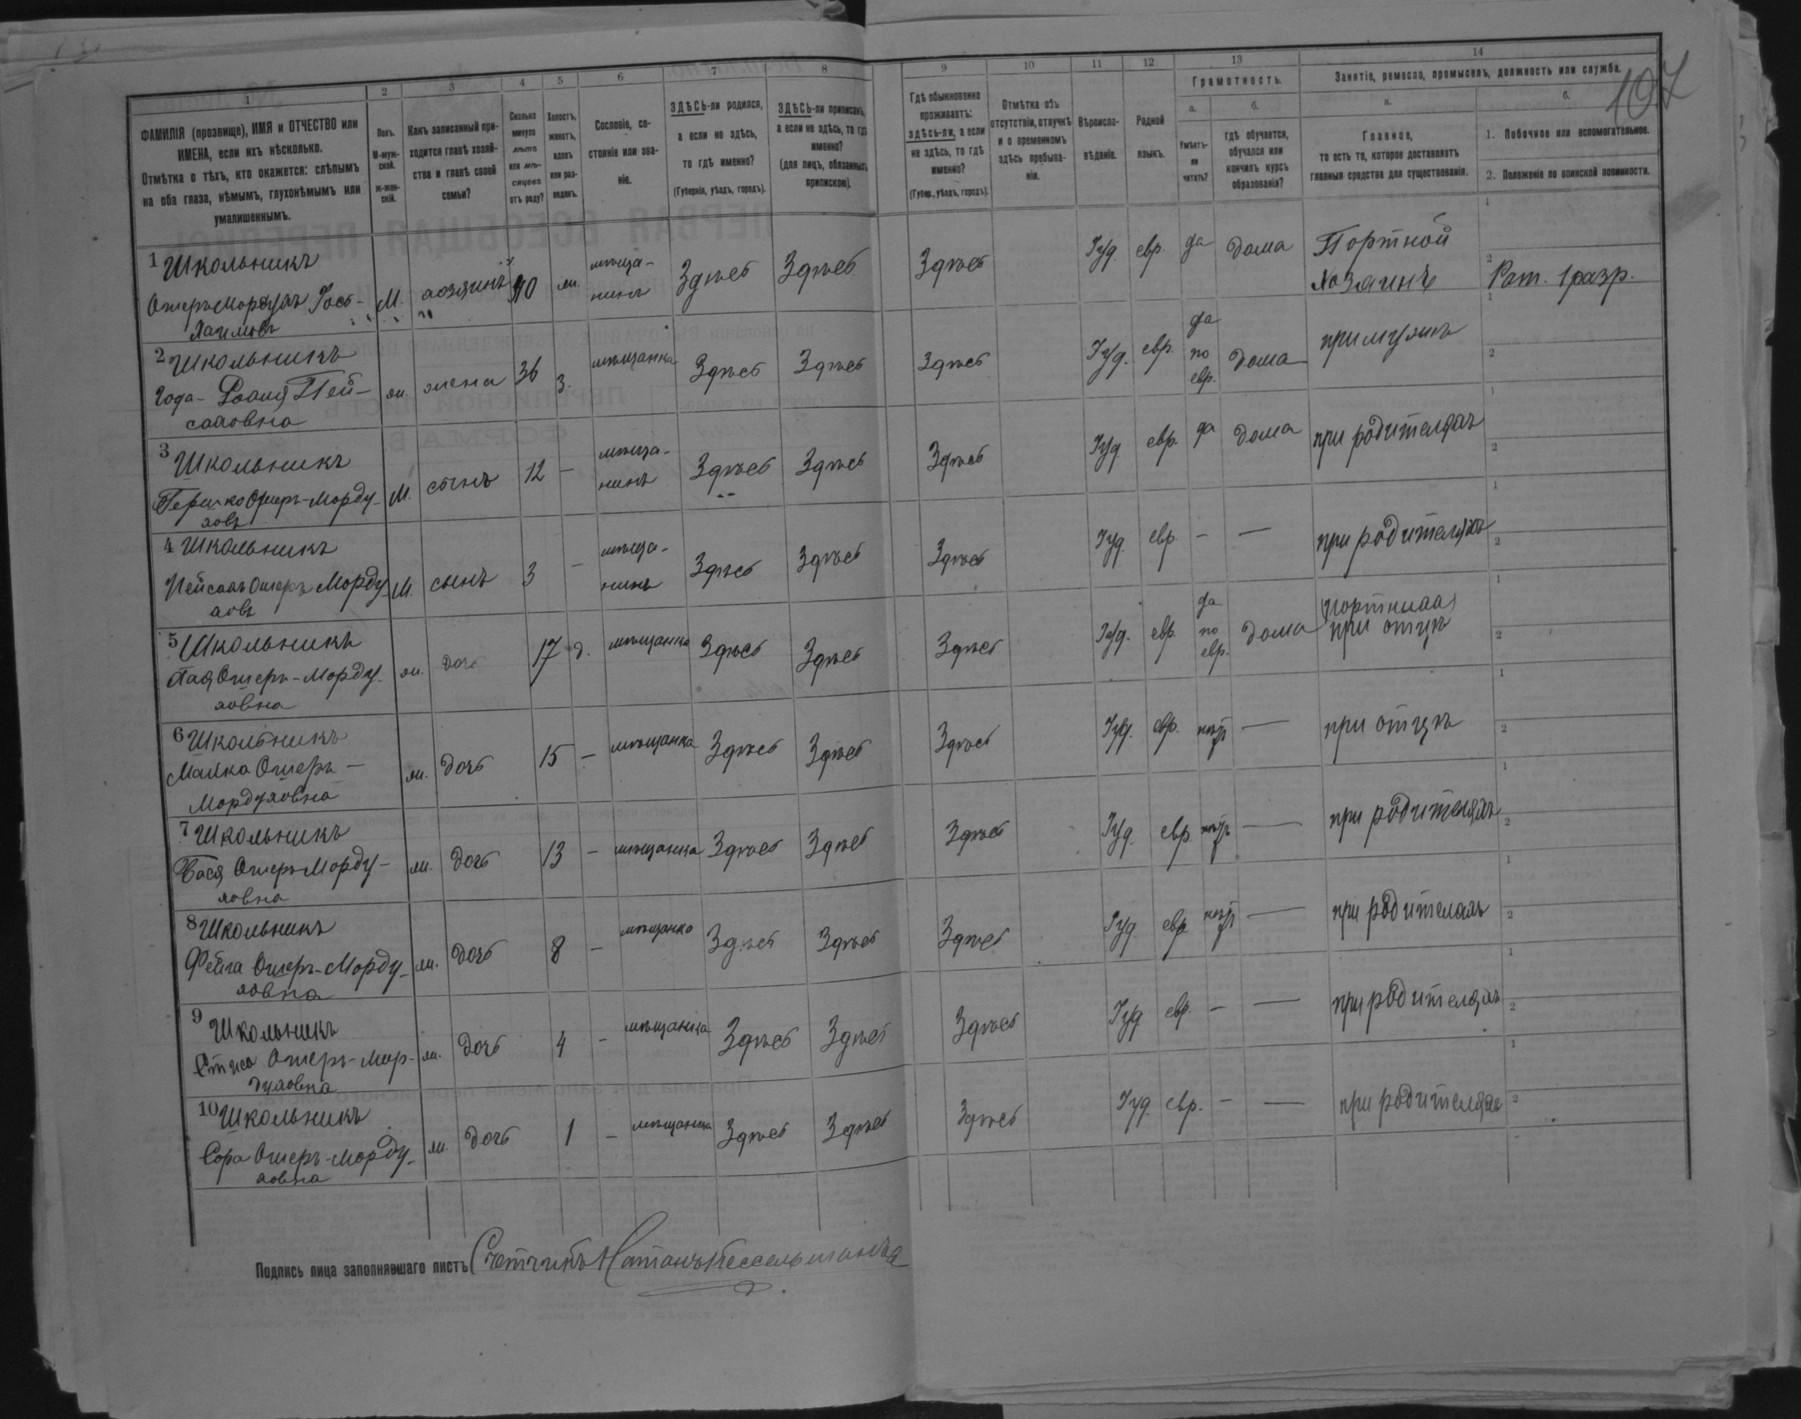 107
1 2 3 4 5 6 7 8 9 10 11 12 13 14
ФАМИЛІЯ (прозвище), ИМЯ и ОТЧЕСТВО или
ИМЕНА, если ихъ нѣсколько.
Отмѣтка о тѣхъ, кто окажется: слѣпымъ
на оба глаза, нѣмымъ, глухонѣмымъ или
умалишеннымъ.
Полъ.
М-муж-
ской.
Ж-жен-
скій.
Какъ записанный при-
ходится главѣ хозяй-
ства и главѣ своей
семьи?
Сколько
минуло
лѣтъ
или мѣ-
сяцевъ
отъ роду?
Холостъ,
женатъ,
вдовъ
или раз-
веденъ.
Сословіе, со-
стояніе или зва-
ніе.
ЗДѢСЬ-ли родился,
а если не здѣсь,
то гдѣ именно?
(Губернія, уѣздъ, городъ).
ЗДѢСЬ-ли приписанъ,
а если не здѣсь, то гдѣ
именно?
(для лицъ, обязанныхъ
припискою).
Гдѣ обыкновенно
проживаетъ:
здѣсь-ли, а если
не здѣсь, то гдѣ
именно?
(Губер., уѣздъ, городъ).
Отмѣтка объ
отсутствіи, отлучкѣ
и о временномъ
здѣсь пребыва-
ніи.
Вѣроиспо-
вѣданіе.
Родной
языкъ.
Грамотность.
а.
Умѣетъ-
ли
читать?
б.
гдѣ обучается,
обучался или
кончилъ курсъ
образованія?
Занятіе, ремесло, промыселъ, должность или служба.
а.
Главное,
то есть то, которое доставляетъ
главныя средства для существованія.
б.
1. Побочное или вспомогательное.
2. Положеніе по воинской повинности.
1 Школьникъ
Ошеръ-Мордухъ
Хаимовъ
М. хозяинъ 40 ж. мѣща-
нинъ
Здѣсь Здѣсь Здѣсь Іуд. евр. да дома Портной
хозяинъ
1
2 Рат. 1 разр.
2 Школьникъ
Пей-
саховна
ж. жена 36 з. мѣщанка Здѣсь Здѣсь Здѣсь Іуд. евр. да
по
евр.
дома при мужѣ
1
2
3 Школьникъ
Гершко Ошеръ-Морду-
ховъ
М. сынъ 12 — мѣща-
нинъ
Здѣсь Здѣсь Здѣсь Іуд. евр. да дома при родителяхъ
1
2
4 Школьникъ
Пейсахъ Ошеръ-Морду-
ховъ
М. сынъ 3 — мѣща-
нинъ
Здѣсь Здѣсь Здѣсь Іуд. евр. — — при родителяхъ
1
2
5 Школьникъ
Ошеръ-Морду-
ховна
ж. дочь 17 д. мѣщанка Здѣсь Здѣсь Здѣсь Іуд. евр. да
по
евр.
дома при отцѣ
1
2
6 Школьникъ
Малка Ошеръ-
Мордуховна
ж. дочь 15 — мѣщанка Здѣсь Здѣсь Здѣсь Іуд. евр. нѣтъ — при отцѣ
1
2
7 Школьникъ
Бася Ошеръ-Морду-
ховна
ж. дочь 13 — мѣщанка Здѣсь Здѣсь Здѣсь Іуд. евр. нѣтъ — при родителяхъ
1
2
8 Школьникъ
Фейга Ошеръ-Морду-
ховна
ж. дочь 8 — мѣщанка Здѣсь Здѣсь Здѣсь Іуд. евр. нѣтъ — при родителяхъ
1
2
9 Школьникъ
Ошеръ-Мор-
духовна
ж. дочь 4 — мѣщанка Здѣсь Здѣсь Здѣсь Іуд. евр. — — при родителяхъ
1
2
10 Школьникъ
Сора Ошеръ-Морду-
ховна
ж. дочь 1 — мѣщанка Здѣсь Здѣсь Здѣсь Іуд. евр. — — при родителяхъ
1
2
Подпись лица заполнявшаго листъ Счетчикъ Натанъ